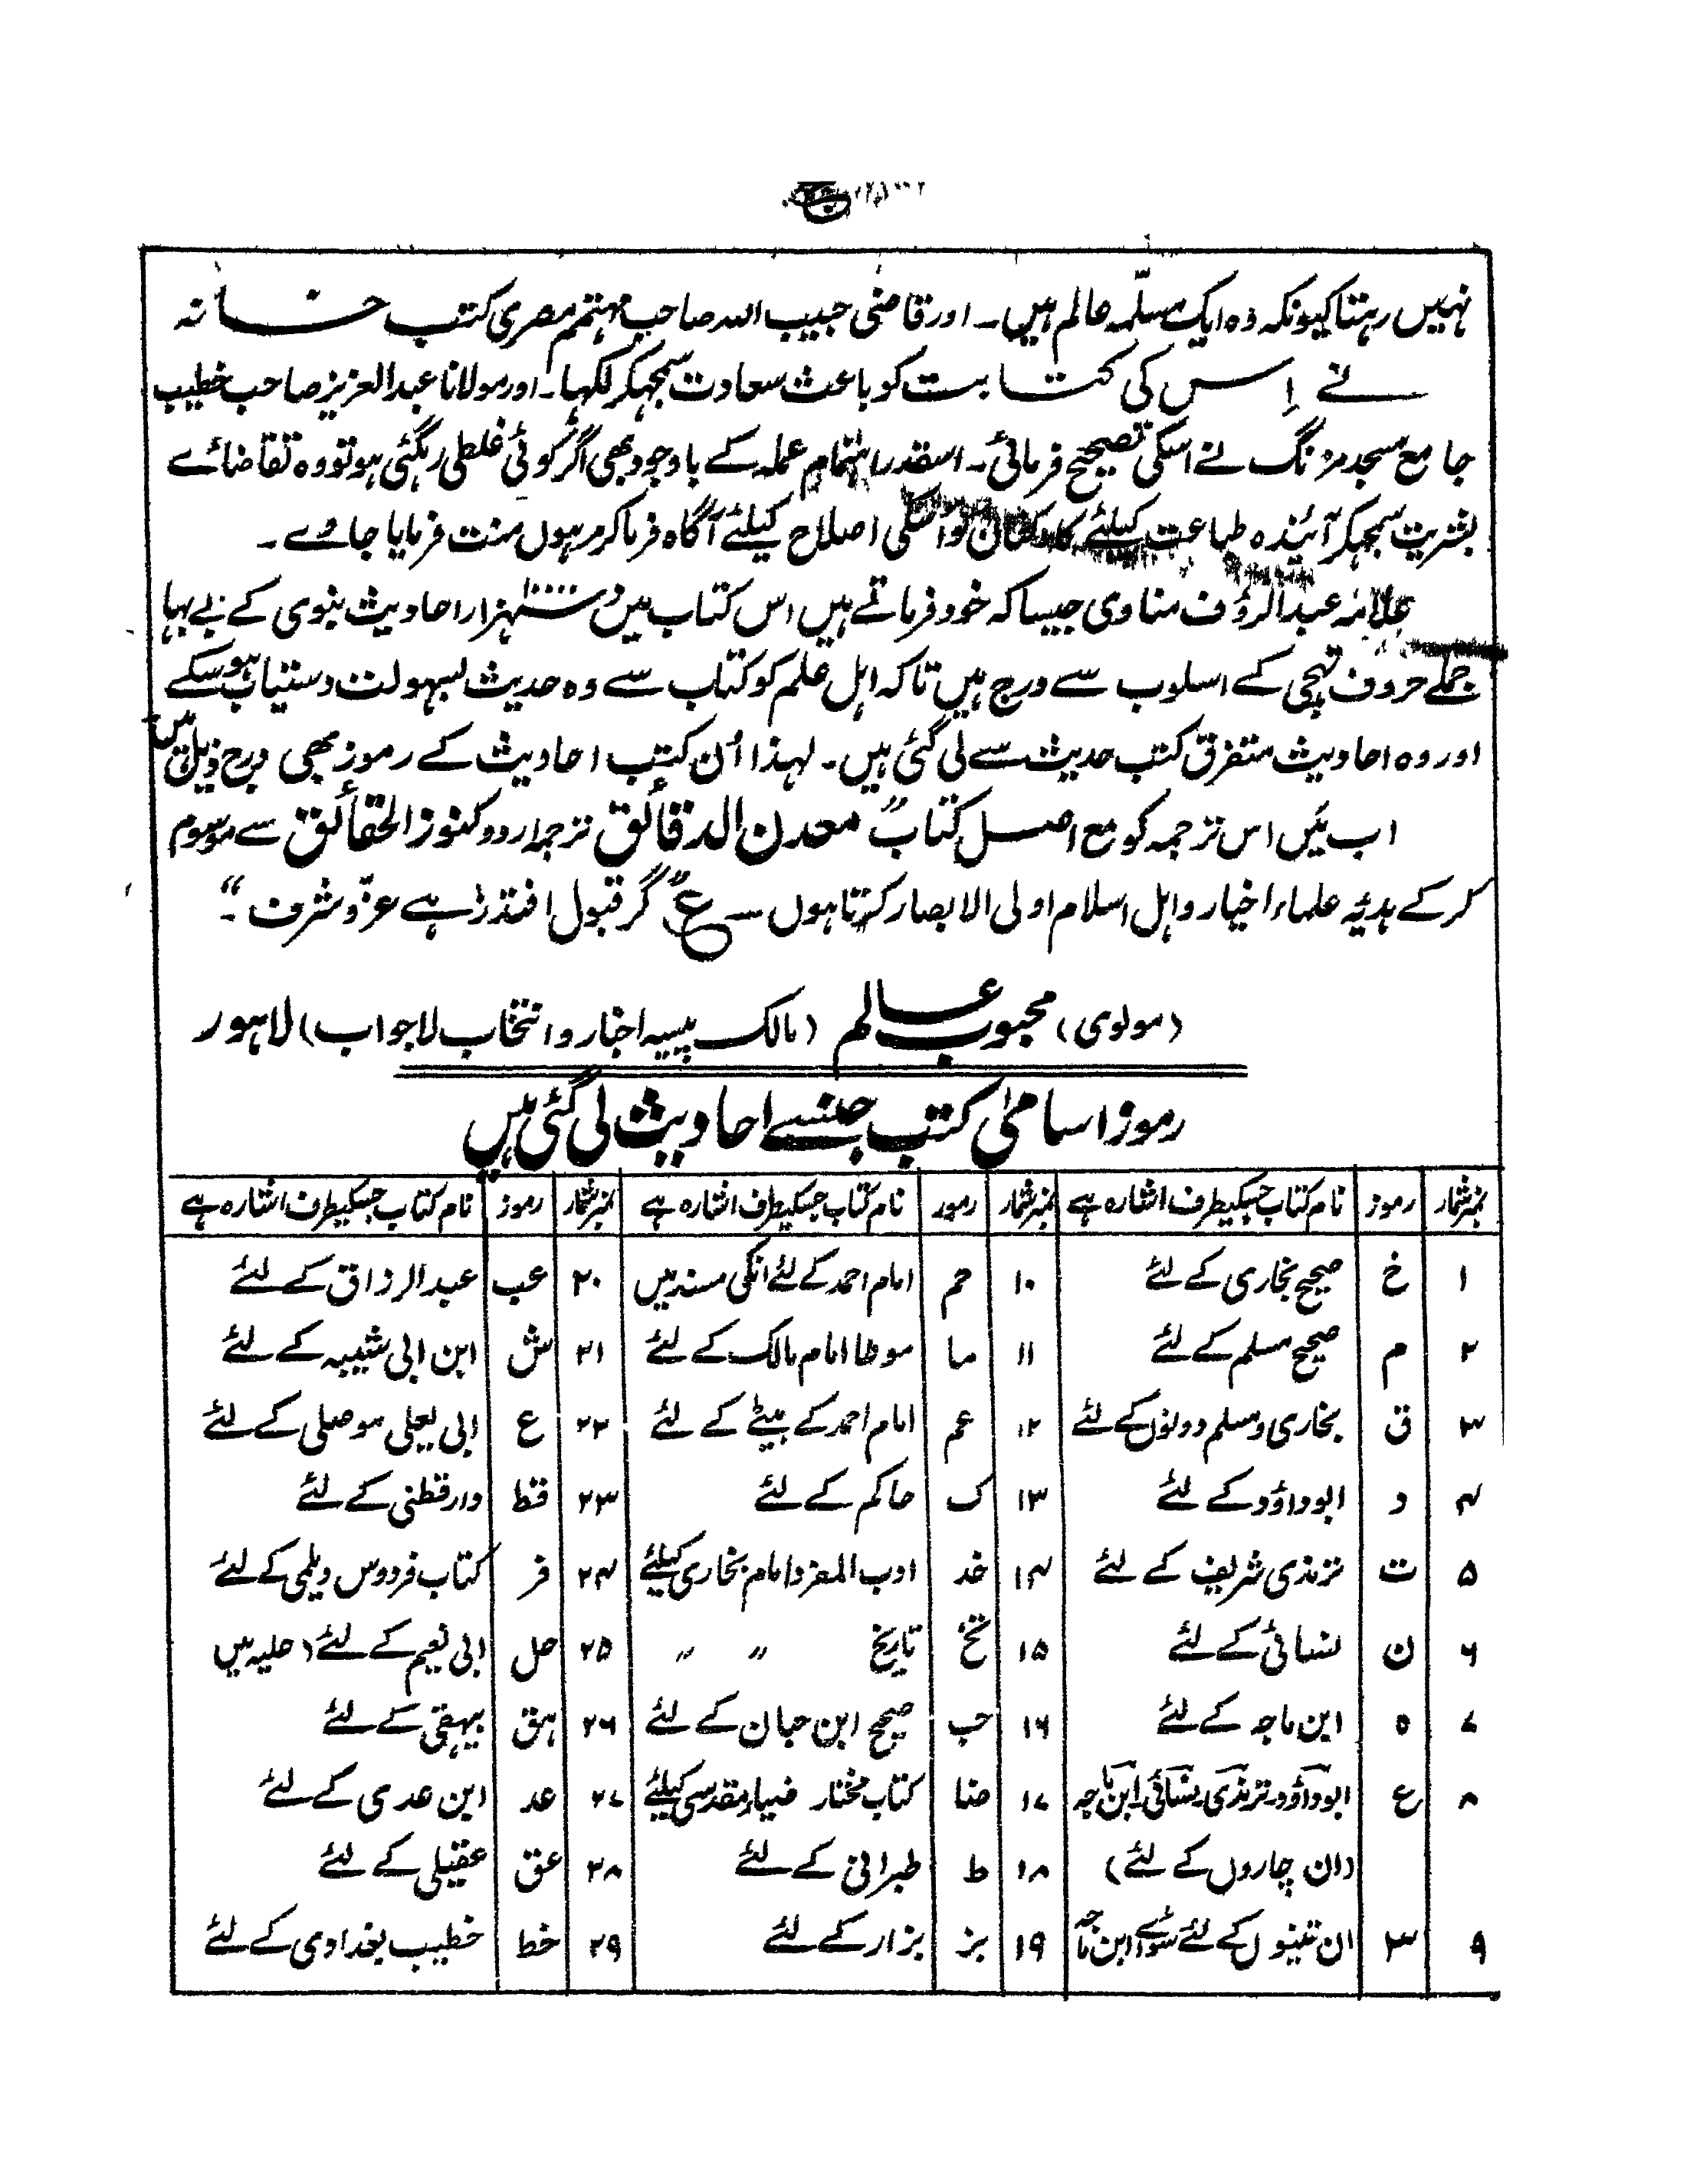 نہیں رہتا کیونکہ وہ ایک مسلّمہ عالم ہیں۔ اور قاضی حبیب اللہ صاحب مہتمم مصری کتب خانہ
نے اِس کی کتابت کو باعث سعادت سمجہکر لکہا۔ اور مولانا عبد العزیز صاحب خطیب
جامع مسجد مزنگ نے اسکی تصحیح فرمائی۔ اسقدر اہتمام عملہ کے باوجود بھی اگر کوئی غلطی رہگئی ہو تو وہ تقاضائے
بشریت سمجہکر آئندہ طباعت کیلئے کارکنان کو اسکی اصلاح کیلئے آگاہ فرماکر مرہوں منت فرمایا جاوے۔
علامہ عبد الرؤف مناوی جیساکہ خود فرماتے ہیں اس کتاب میں دس ہزار احادیث نبوی کے بے بہا
جملے حروف تہجی کے اسلوب سے درج ہیں تاکہ اہل علم کو کتاب سے وہ حدیث بسہولت دستیاب ہوسکے
اور وہ احادیث متفرق کتب حدیث سے لی گئی ہیں۔ لہذا اُن کتب احادیث کے رموز بھی درج ذیل ہیں
اب مَیں اس ترجمہ کو مع اصل کتاب "معدن الدقائق ترجمہ اردو کنوز الحقائق سے موسوم
کرکے ہدیہ علماء اخیار و اہل اسلام اولی الابصار کرتا ہوں ــ ع "گر قبول افتد زہے عزّ و شرف"۔
(مولوی) محبوب عالم (مالک پیسہ اخبار و انتخاب لاجواب) لاہور
رموز اسامئی کتب جنسے احادیث لی گئی ہیں
نمبرشمار رموز نام کتاب جسکیطرف اشارہ ہے نمبرشمار رموز نام کتاب جسکیطرف اشارہ ہے نمبرشمار رموز نام کتاب جسکیطرف اشارہ ہے
۱ خ صحیح بخاری کے لئے ۱۰ حم امام احمد کے لئے انکی مسند میں ۲۰ عب عبد الرزاق کے لئے
۲ م صحیح مسلم کے لئے ۱۱ ما موطا امام مالک کے لئے ۲۱ ش ابن ابی شیبہ کے لئے
۳ ق بخاری و مسلم دونوں کے لئے ۱۲ عم امام احمد کے بیٹے کے لئے ۲۲ ع ابی یعلی موصلی کے لئے
۴ د ابو داؤد کے لئے ۱۳ ک حاکم کے لئے ۲۳ قط دار قطنی کے لئے
۵ ت ترمذی شریف کے لئے ۱۴ خد ادب المفرد امام بخاری کیلئے ۲۴ فر کتاب فردوس دیلمی کے لئے
۶ ن نسائی کے لئے ۱۵ تخ تاریخ " " ۲۵ حل ابی نعیم کے لئے (حلیہ میں
۷ ہ ابن ماجہ کے لئے ۱۶ حب صحیح ابن حبان کے لئے ۲۶ ہق بیہقی کے لئے
۸ ع ابو داؤد ترمذی نسائی ابن ماجہ ۱۷ ضا کتاب مختار ضیاء مقدسی کیلئے ۲۷ عد ابن عدی کے لئے
(ان چاروں کے لئے) ۱۸ ط طبرانی کے لئے ۲۸ عق عقیلی کے لئے
۹ ۳ ان تینوں کے لئے سوائے ابن ماجہ ۱۹ بز بزار کے لئے ۲۹ خط خطیب بغدادی کے لئے